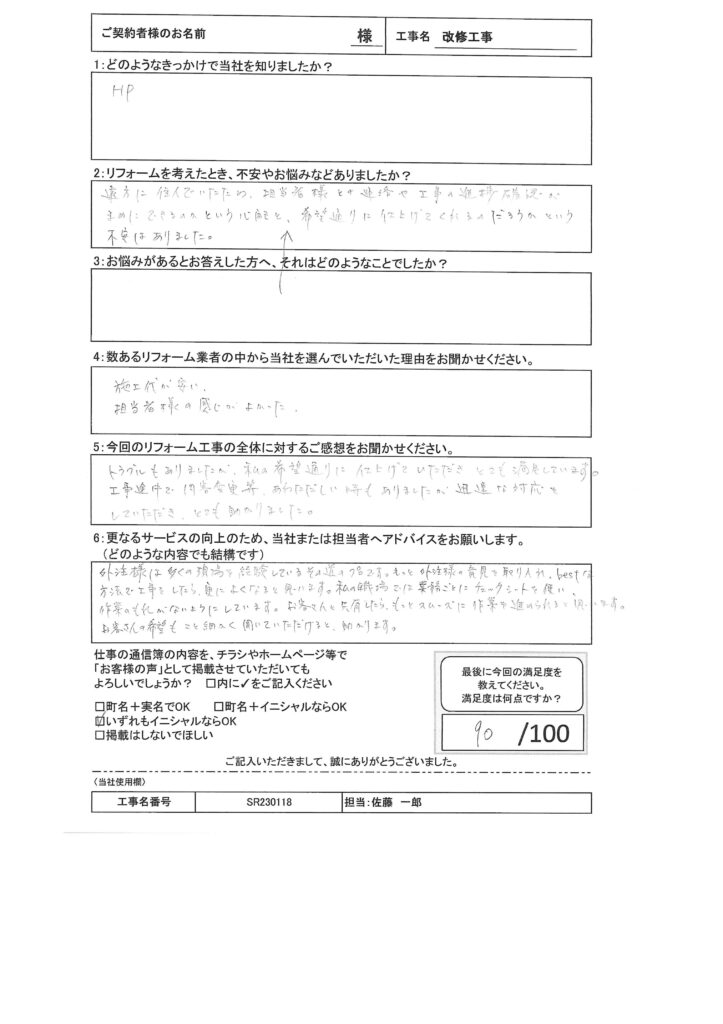 ご契約者様のお名前
様
工事名 改修工事
1:どのようなきっかけで当社を知りましたか?
HP
2:リフォームを考えたとき、不安やお悩みなどありましたか?
遠方に住んでいたため、担当者様との連絡や工事の進捗確認が
まめにできるのかという心配と、希望通りに仕上げてくれるのだろうかという
不安はありました。
3:お悩みがあるとお答えした方へ、それはどのようなことでしたか?
4:数あるリフォーム業者の中から当社を選んでいただいた理由をお聞かせください。
施工代が安い、
担当者様の感じがよかった、
5:今回のリフォーム工事の全体に対するご感想をお聞かせください。
トラブルもありましたが、私の希望通りに仕上げていただきとても満足しています。
工事途中で内容変更等、あわただしい時もありましたが迅速な対応を
していただき、とても助かりました。
6:更なるサービスの向上のため、当社または担当者へアドバイスをお願いします。
(どのような内容でも結構です)
外注様は多くの現場を経験しているその道のプロです。もっと外注様の意見を取り入れ、bestな
方法で工事をしたら、更によくなると思います。私の職場では業務ごとにチェックシートを使い、
作業のもれがないようにしています。お客さんと共有したら、もっとスムーズに作業を進められると思います。
お客さんの希望もこと細かく聞いていただけると、助かります。
仕事の通信簿の内容を、チラシやホームページ等で
「お客様の声」として掲載させていただいても
よろしいでしょうか? □内に✓をご記入ください
□町名+実名でOK □町名+イニシャルならOK
☑いずれもイニシャルならOK
□掲載はしないでほしい
最後に今回の満足度を
教えてください。
満足度は何点ですか?
90 /100
ご記入いただきまして、誠にありがとうございました。
(当社使用欄)
工事名番号 SR230118 担当:佐藤 一郎